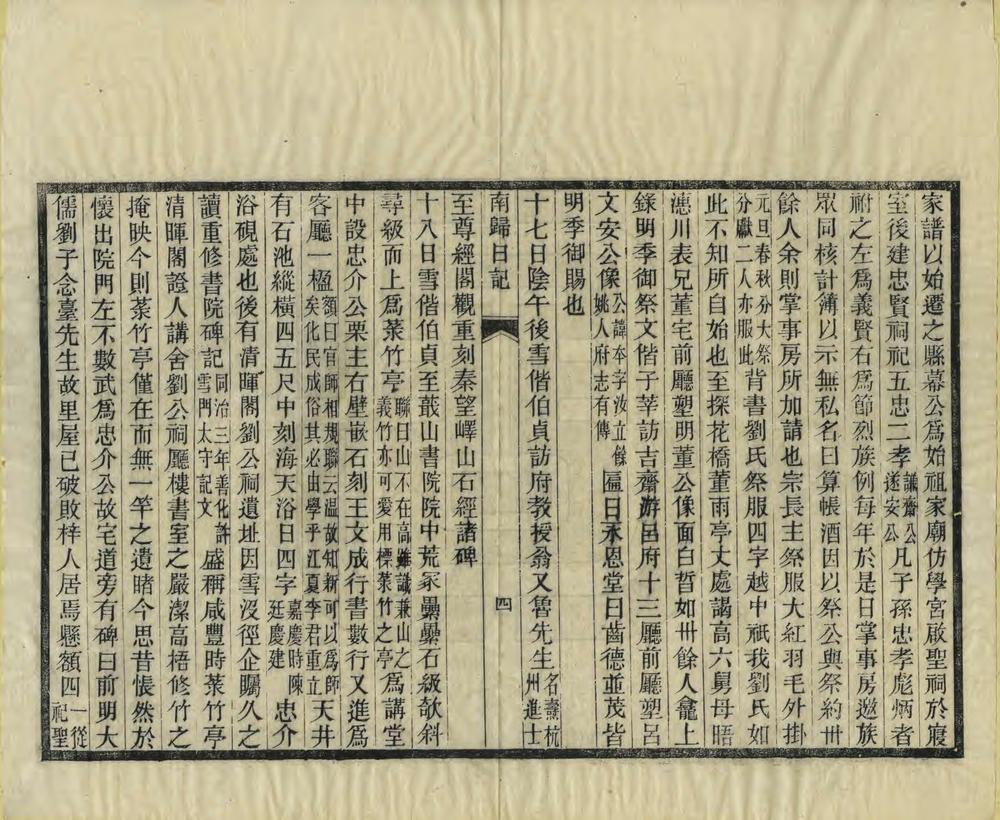 家譜以始遷之縣幕公爲始祖家廟仿學宮啟聖祠於寢
室後建忠賢祠祀五忠二孝謙齋公遂安公凡子孫忠孝彪炳者
祔之左爲義賢右爲節烈族例每年於是日掌事房邀族
眾同核計簿以示無私名曰算帳酒因以祭公與祭約卅
餘人余則掌事房所加請也宗長主祭服大紅羽毛外掛
元旦春秋分大祭分獻二人亦服此背書劉氏祭服四字越中祇我劉氏如
此不知所自始也至探花橋董雨亭丈處謁高六舅母晤
漶川表兄董宅前廳塑明董公像面白皙如卅餘人龕上
錄明季御祭文偕子莘訪吉齋游呂府十三廳前廳塑呂
文安公像公諱本字汝立餘姚人府志有傳匾曰永恩堂曰齒德並茂皆
明季御賜也
十七日陰午後雪偕伯貞訪府教授翁又魯先生名燾杭州進士
南歸日記
四
至尊經閣觀重刻秦望嶧山石經諸碑
十八日雪偕伯貞至蕺山書院院中荒冢纍纍石級欹斜
尋級而上爲菉竹亭聯曰山不在高雖讖兼山之義竹亦可愛用標菉竹之亭爲講堂
中設忠介公栗主右壁嵌石刻王文成行書數行又進爲
客廳一楹額曰官師相規聯云溫故知新可以爲師矣化民成俗其必由學乎江夏李君重立天井
有石池縱橫四五尺中刻海天浴日四字嘉慶時陳廷慶建忠介
浴硯處也後有清暉閣劉公祠遺址因雪沒徑企矚久之
讀重修書院碑記同治三年善化許雪門太守記文盛稱咸豐時菉竹亭
清暉閣證人講舍劉公祠廳樓書室之嚴潔高梧修竹之
掩映今則菉竹亭僅在而無一竿之遺睹今思昔悵然於
懷出院門左不數武爲忠介公故宅道旁有碑曰前明大
儒劉子念臺先生故里屋已破敗梓人居焉懸額四一從祀聖